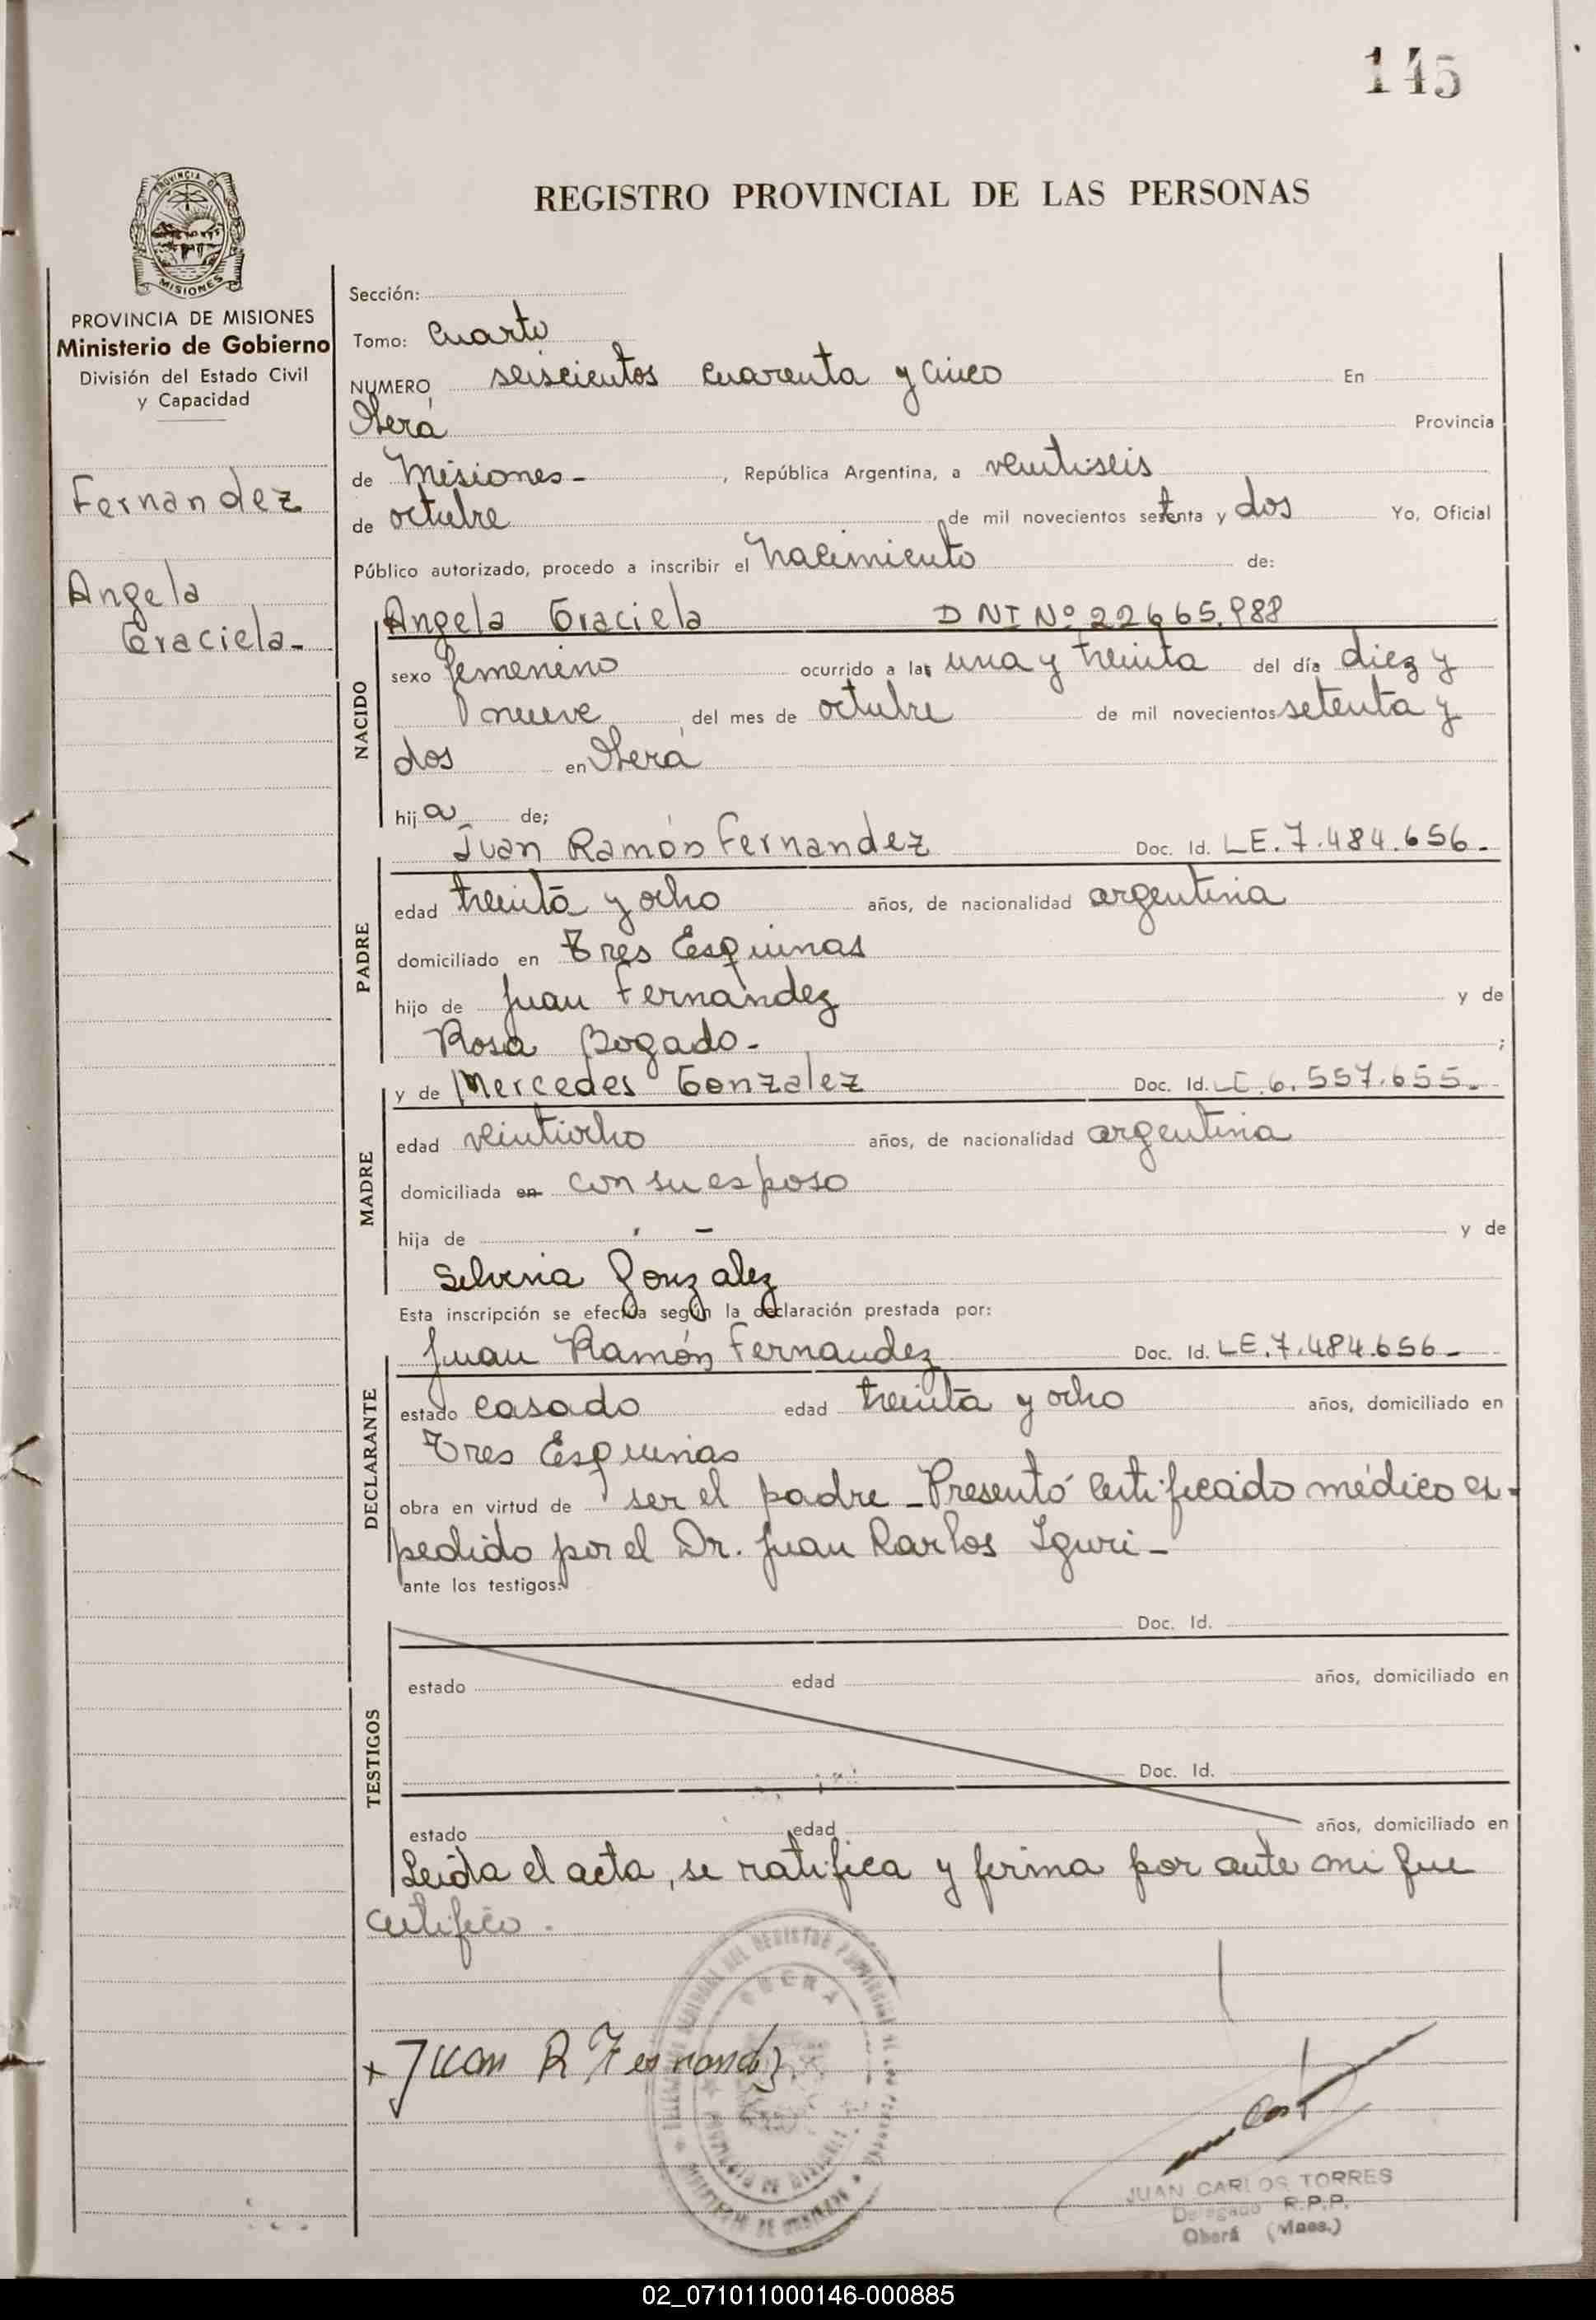 145
PROVINCIA DE
MISIONES
REGISTRO PROVINCIAL DE LAS PERSONAS
PROVINCIA DE MISIONES
Ministerio de Gobierno
División del Estado Civil
y Capacidad
Fernandez
Angela
Graciela-
Sección:
Tomo: Cuarto
NUMERO seiscientos cuarenta y cinco En
Oberá Provincia
de Misiones- , República Argentina, a veintiseis
de octubre de mil novecientos setenta y dos Yo, Oficial
Público autorizado, procedo a inscribir el Nacimiento de:
NACIDO
Angela Graciela DNI Nº 22665.988
sexo femenino ocurrido a las una y treinta del día diez y
nueve del mes de octubre de mil novecientos setenta y
dos en Oberá
hija de;
PADRE
Juan Ramón Fernandez Doc. Id. LE.7.484.656.-
edad treinta y ocho años, de nacionalidad argentina
domiciliado en Tres Esquinas
hijo de Juan Fernandez y de
Rosa Bogado- ;
MADRE
y de Mercedes Gonzalez Doc. Id. LC.6.557.655.-
edad veintiocho años, de nacionalidad argentina
domiciliada en con su esposo
hija de - y de
Silveria Gonzalez
Esta inscripción se efectúa según la declaración prestada por:
DECLARANTE
Juan Ramón Fernandez Doc. Id. LE.7.484.656-
estado casado edad treinta y ocho años, domiciliado en
Tres Esquinas
obra en virtud de ser el padre - Presentó certificado médico ex-
pedido por el Dr. Juan Carlos Iguri-
ante los testigos:
TESTIGOS
Doc. Id.
estado edad años, domiciliado en
Doc. Id.
estado edad años, domiciliado en
Leída el acta, se ratifica y firma por ante mi que
certifico.
x Juan R Fernandez
OBERA
JUAN CARLOS TORRES
Delegado R.P.P.
Oberá (Mnes.)
02_071011000146-000885